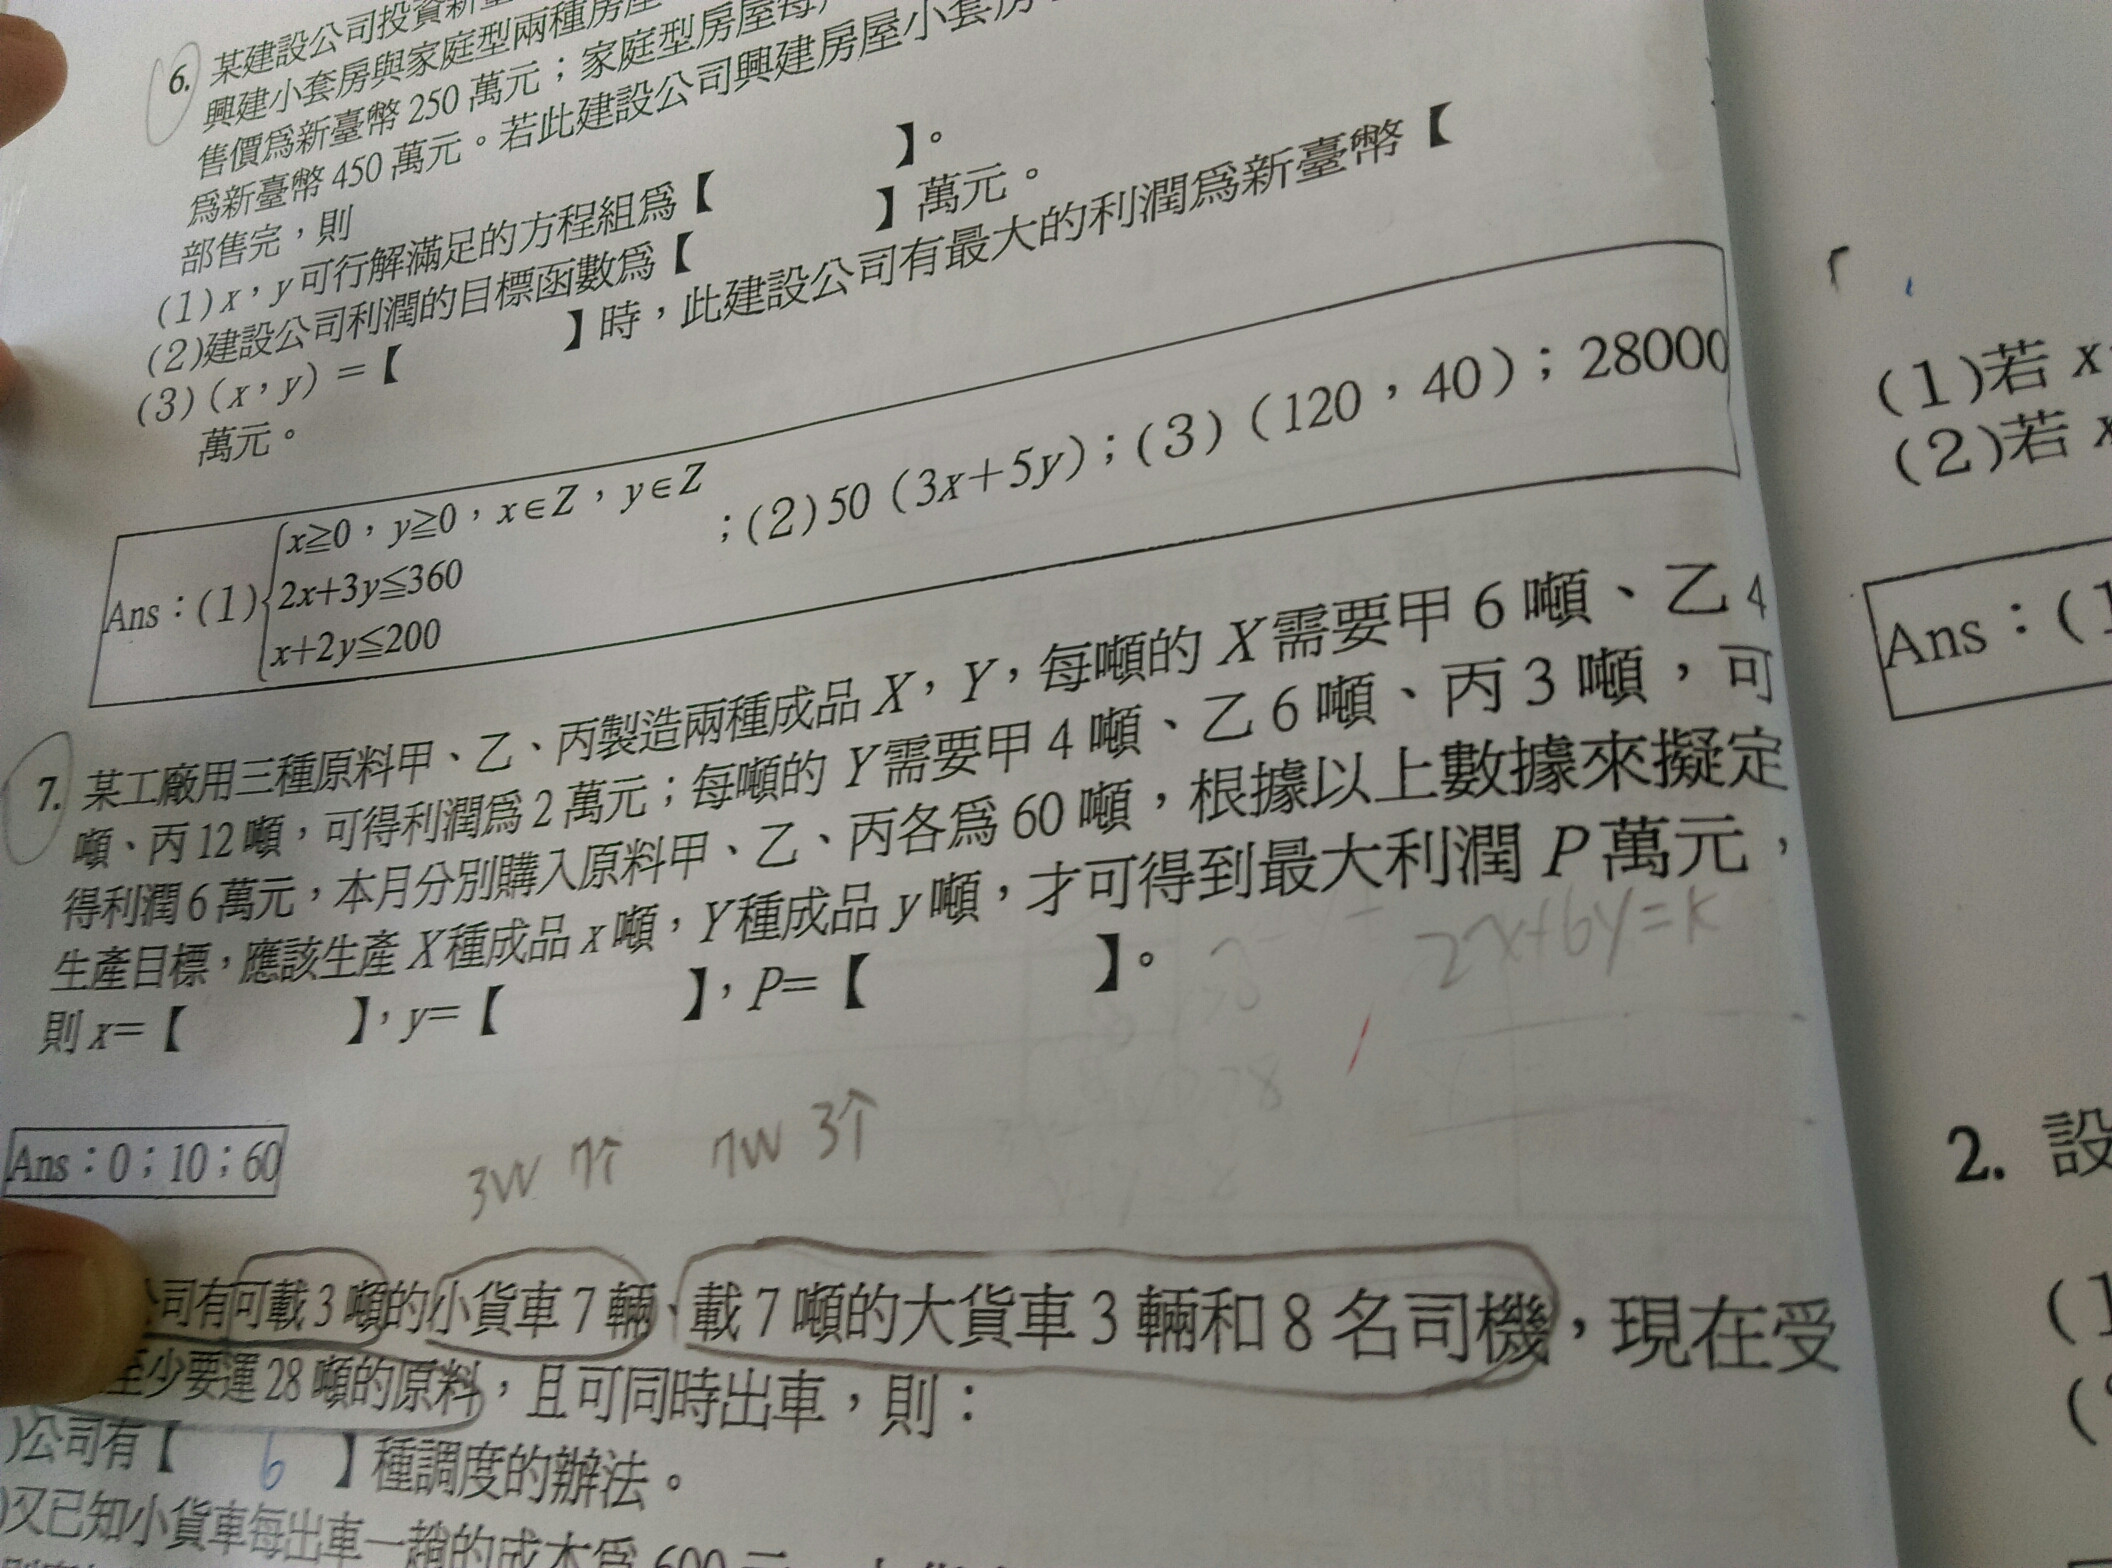 6. 某建設公司投資新
興建小套房與家庭型兩種房屋
售價為新臺幣 250 萬元；家庭型房屋每
為新臺幣 450 萬元。若此建設公司興建房屋小套房
部售完，則
(1) x，y 可行解滿足的方程組為【 】。
(2)建設公司利潤的目標函數為【 】萬元。
(3) (x，y) =【 】時，此建設公司有最大的利潤為新臺幣【
萬元。
Ans：(1){x≧0，y≧0，x∈Z，y∈Z
2x+3y≦360
x+2y≦200
；(2) 50 (3x+5y)；(3) (120，40)；28000
7. 某工廠用三種原料甲、乙、丙製造兩種成品 X，Y，每噸的 X 需要甲 6 噸、乙 4
噸、丙 12 噸，可得利潤為 2 萬元；每噸的 Y 需要甲 4 噸、乙 6 噸、丙 3 噸，可
得利潤 6 萬元，本月分別購入原料甲、乙、丙各為 60 噸，根據以上數據來擬定
生產目標，應該生產 X 種成品 x 噸，Y 種成品 y 噸，才可得到最大利潤 P 萬元，
則 x=【 】，y=【 】，P=【 】。
2x+6y=k
Ans：0；10；60
3W 7个 7W 3个
公司有可載 3 噸的小貨車 7 輛、載 7 噸的大貨車 3 輛和 8 名司機，現在受
至少要運 28 噸的原料，且可同時出車，則：
)公司有【 6 】種調度的辦法。
)又已知小貨車每出車一趟的成本為 600 元
(1)若 x
(2)若 x
Ans：(1
2. 設
(1
(